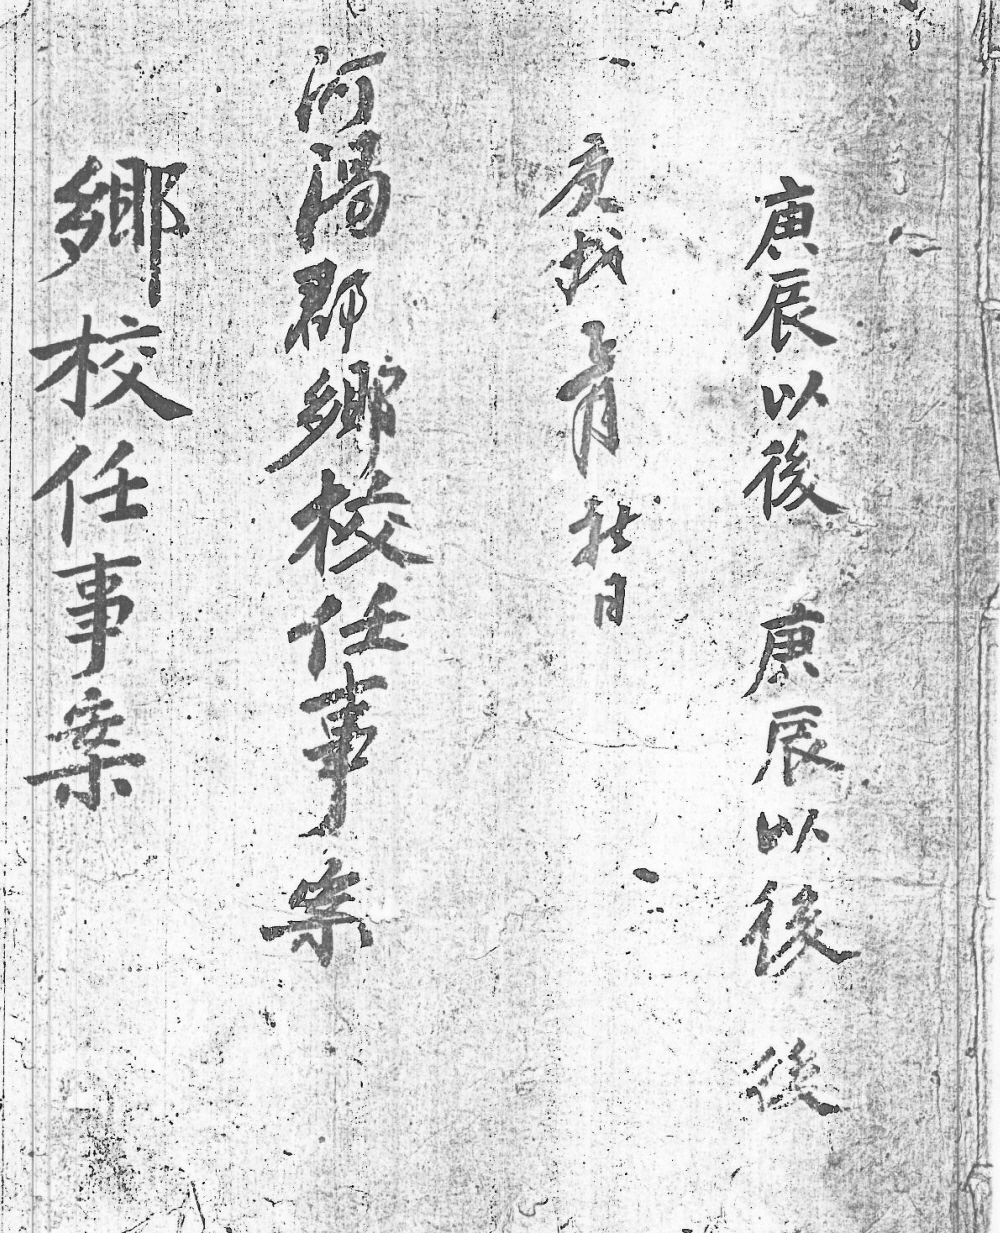 庚辰以後 庚辰以後 後
庚戌 日
河陽郡鄉校任事案
鄉校任事案